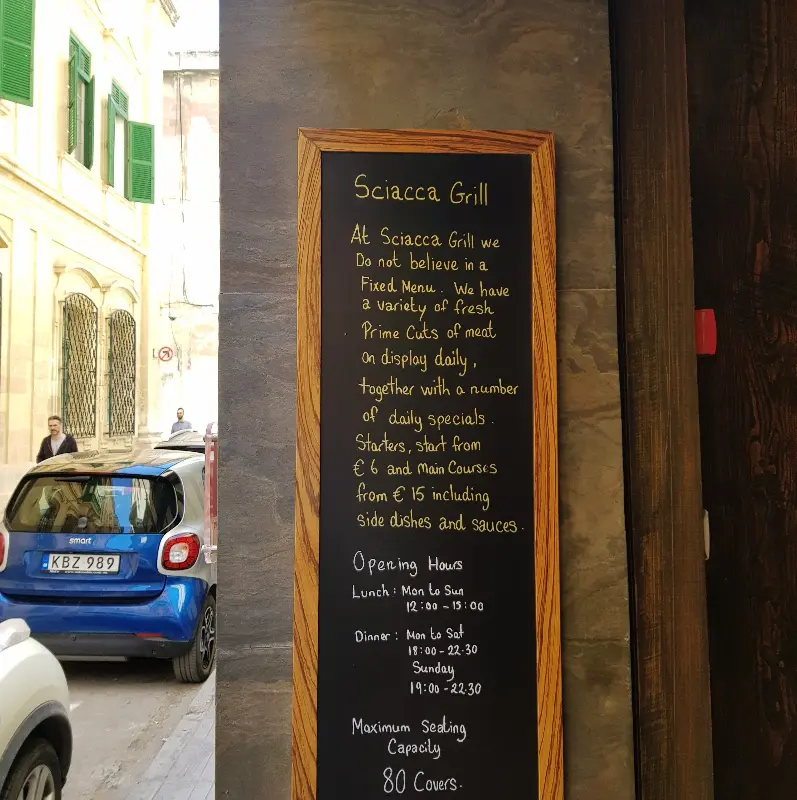 Sciacca Grill
At Sciacca Grill we
Do not believe in a
Fixed Menu. We have
a variety of fresh
Prime Cuts of meat
on display daily,
together with a number
of daily specials.
Starters, start from
€ 6 and Main Courses
from € 15 including
side dishes and sauces.
Opening Hours
Lunch: Mon to Sun
12:00 - 15:00
Dinner: Mon to Sat
18:00 - 22.30
Sunday
19:00 - 22.30
Maximum Seating
Capacity
80 Covers.
smart
KBZ 989